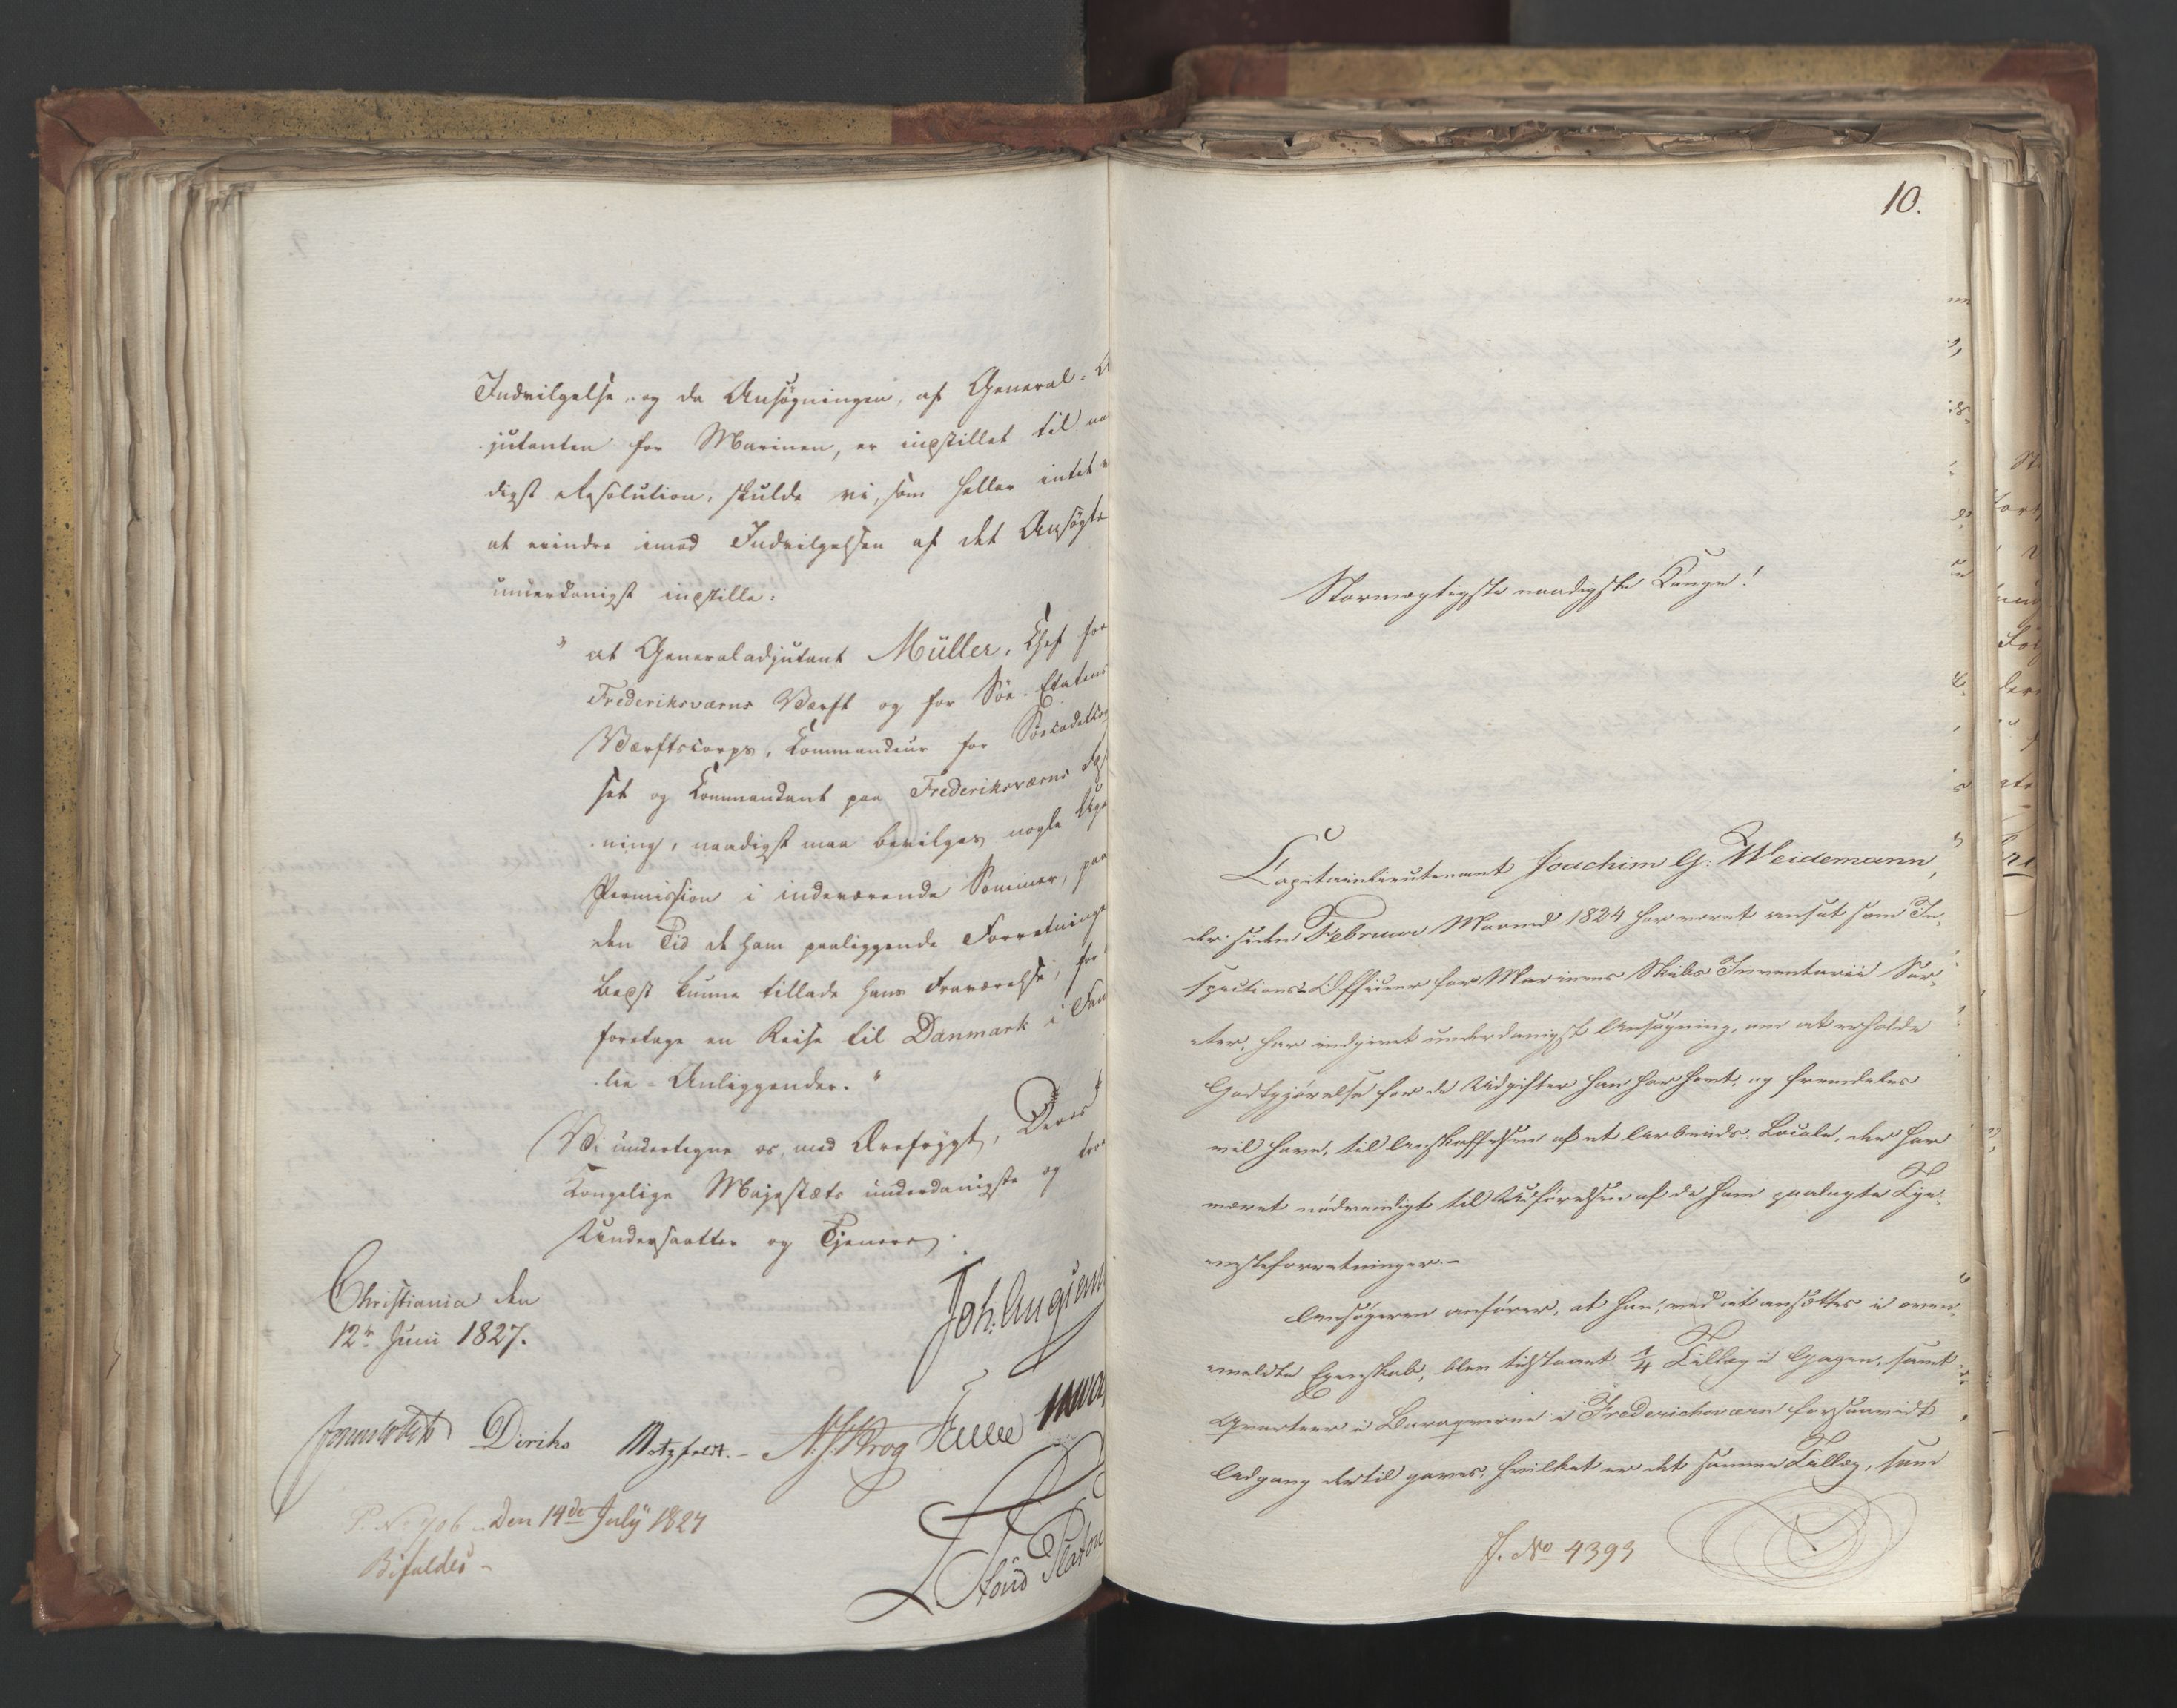 Indvilgelse og da Ansøgningen, af General-A
jutanten for Marinen, er indstillet til naa
digst Resolution, skulde vi, som heller intet
at erindre imod Indvilgelsen af det Ansøgte
underdanigst indstille:
" at Generaladjutant Müller, Chef for
Frederiksværns Værft og for Søe-Etatens
Værftscorps, Commandeur for Søecadetcorp
set og Commandant paa Frederiksværns Fæst
ning, naadigst maa bevilges nogle Uger
Permission i indeværende Sommer, paa
den Tid de ham paaliggende Forretninger
bedst kunne tillade hans Fraværelse, for
foretage en Reise til Danmark i Fam
lie-Anliggender. "
Vi undertegne os, med Ærefrygt, Deres
Kongelige Majestæts underdanigste og troe
Undersaatter og Tjenere.
Christiania den
12te Juni 1827.
Joh. Aug: San
Diriks Motzfeldt.- N. J. Krog
P. No 706 - Den 14de July 1827
Bifaldes -
10.
Stormægtigste naadigste Konge!
Capitainlieutenant Joachim G: Weidemann,
der siden Februar Maaned 1824 har været ansat som In-
spections-Officeer for Marinens Skibs Inventarii Sor-
ter, har indgivet underdanigst Ansøgning, om at erholde
Godtgjørelse for de Udgifter han har havt, og fremdeles
vil have, til Anskaffelsen af et Arbeids-Locale, der har
været nødvendigt til Udførelsen af de ham paalagte Tje-
nesteforretninger.-
Ansøgeren anfører, at han, ved at ansættes i oven-
meldte Egenskab, blev tilstaaet 1/4 Tillæg i Gagen, samt
Qvarteer i Baraquerne i Frederichsværn forsaavidt
Adgang dertil gaves, hvilket er det samme Tillæg, som
J. No 4393